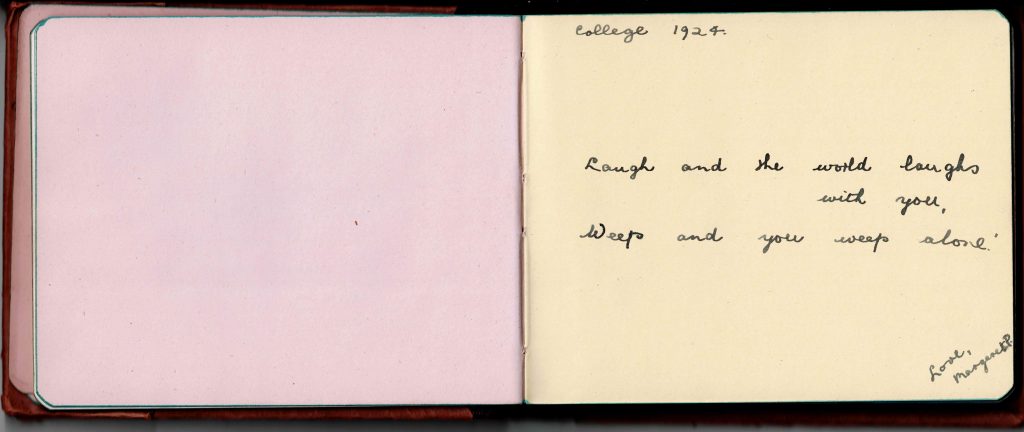 College 1924.
Laugh and the world laughs
with you,
Weep and you weep alone."
Love,
Margaret P.